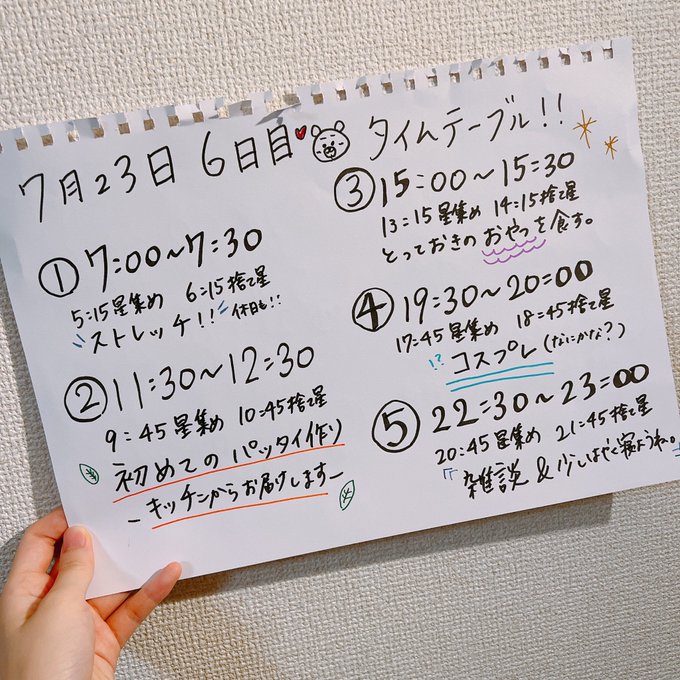 7月23日 6日目 タイムテーブル!!
① 7:00〜7:30
5:15星集め 6:15捨て星
ストレッチ!! 休日も!!
② 11:30〜12:30
9:45星集め 10:45捨て星
初めてのパッタイ作り
-キッチンからお届けします-
③ 15:00〜15:30
13:15星集め 14:15捨て星
とっておきのおやつを食す。
④ 19:30〜20:00
17:45星集め 18:45捨て星
!? コスプレ(なにかな?)
⑤ 22:30〜23:00
20:45星集め 21:45捨て星
『雑談&少しはやく寝ようね。』